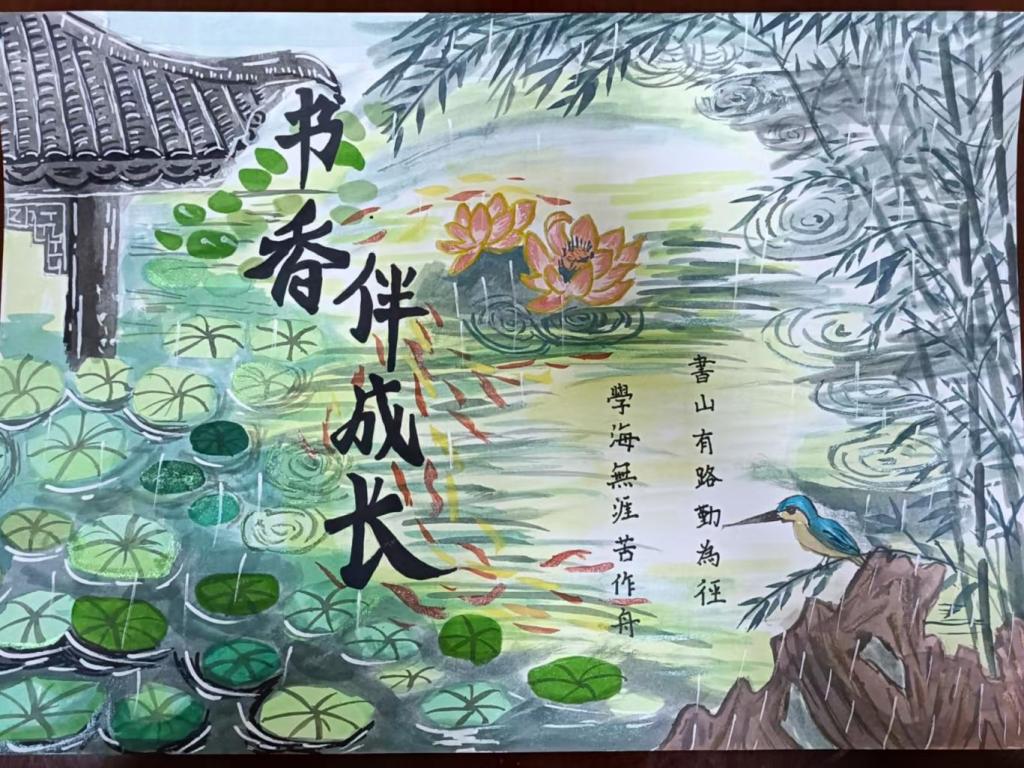 书香
伴成长
書山有路勤為徑
學海無涯苦作舟